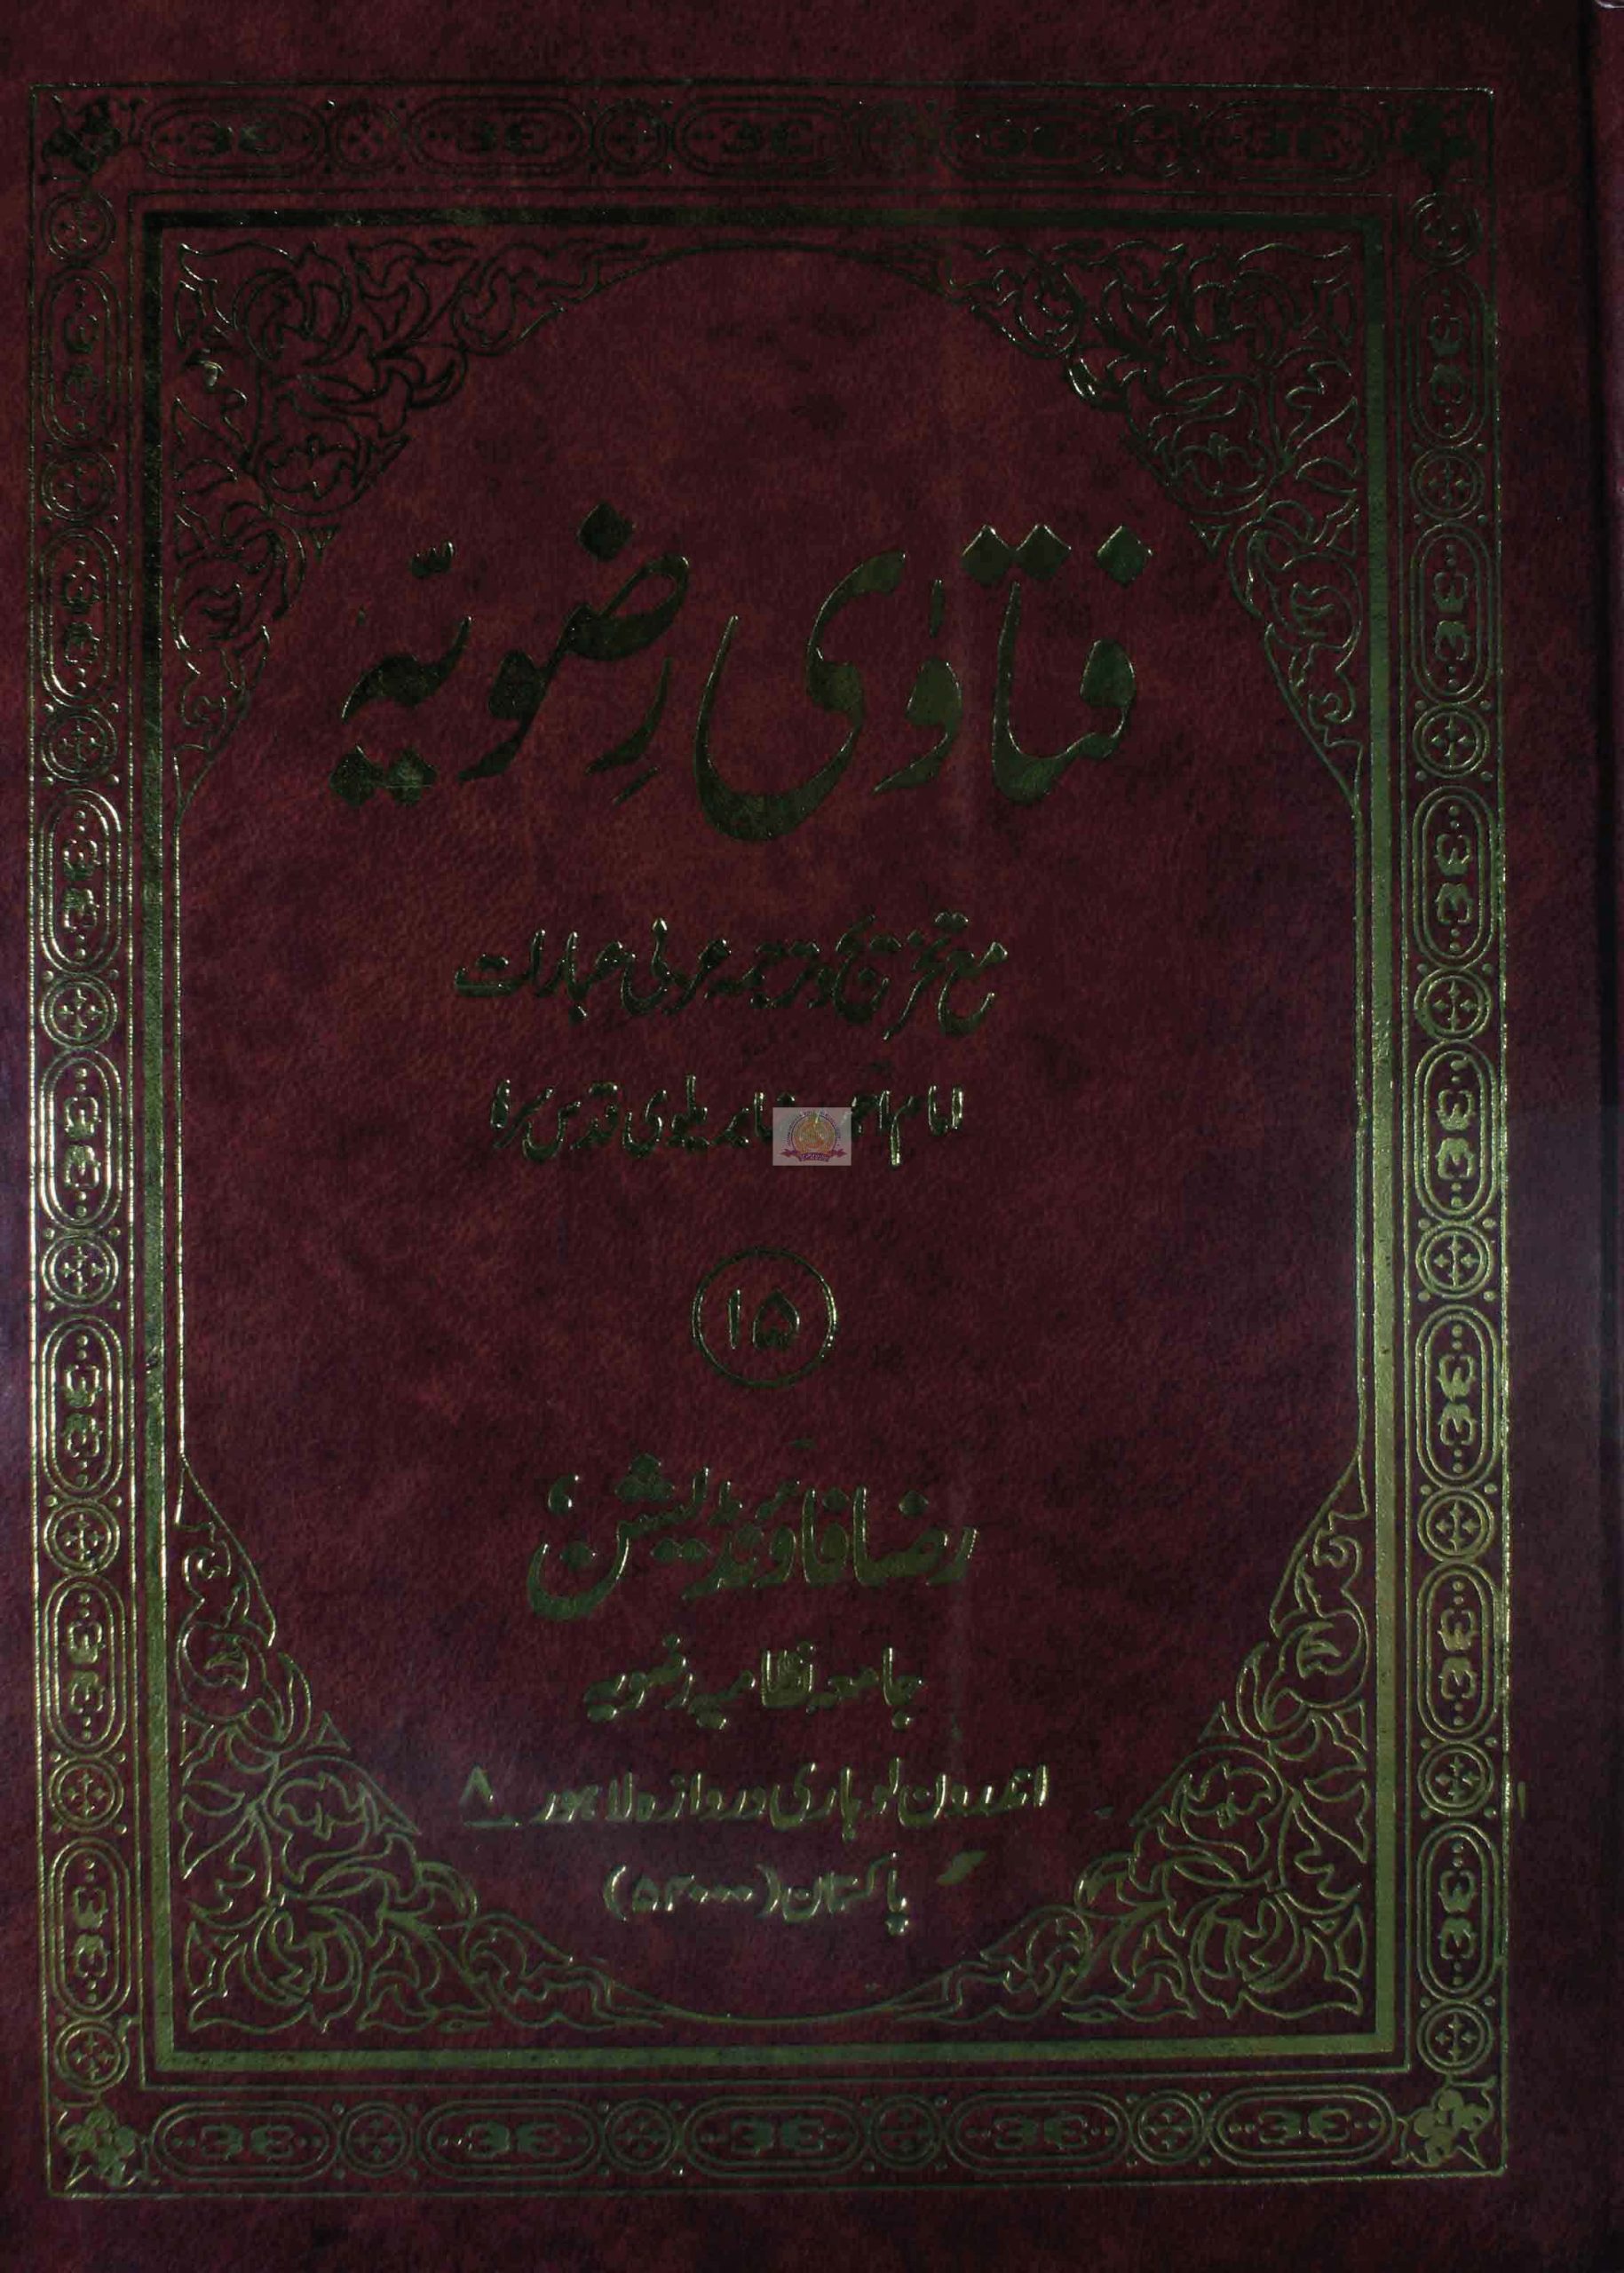 فتاوٰی رِضویّہ
مع تخریج و ترجمہ عربی عبارات
امام احمد رضا بریلوی قدس سرہ
۱۵
رضا فاؤنڈیشن،
جامعہ نظامیہ رضویہ
اندرون لوہاری دروازہ لاہور ۸
پاکستان (۵۴۰۰۰)